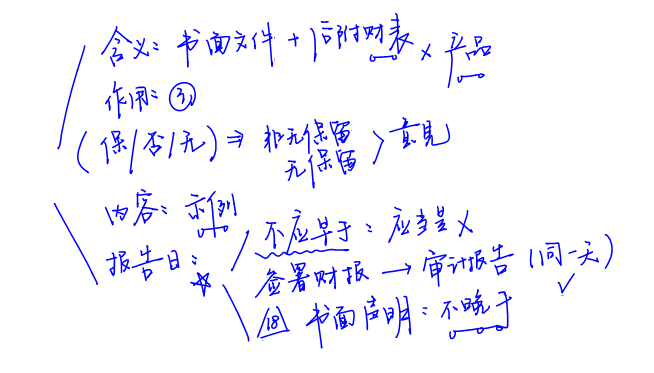 含义：书面文件 + 后附财表 × 产品
作用：③
(保/否/无) ⇒ 非无保留
无保留 > 意见
内容：示例
报告日：☆ 不应早于：应当是 ×
签署财报 → 审计报告 (同一天) ✓
18 书面声明：不晚于